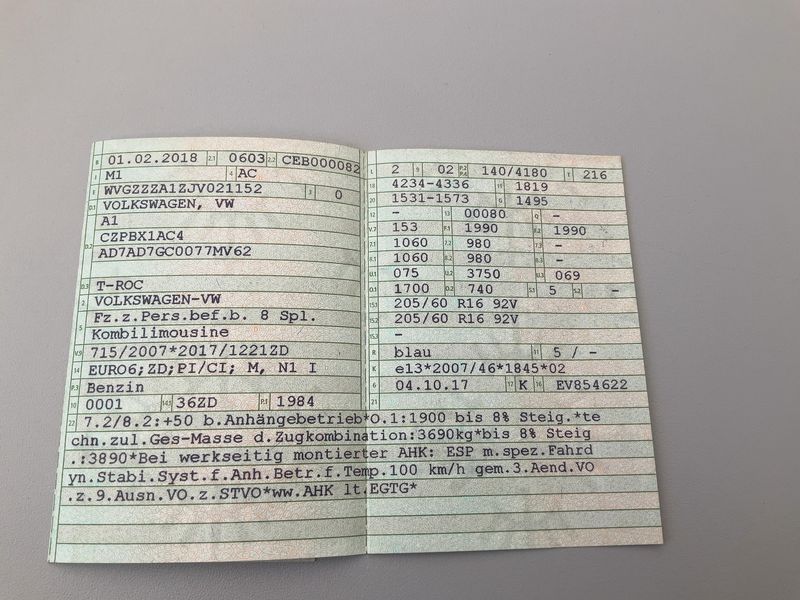 B 01.02.2018 2.1 0603 2.2 CEB000082
J M1 4 AC
E WVGZZZA1ZJV021152 3 0
D.1 VOLKSWAGEN, VW
A1
D.2 CZPBX1AC4
AD7AD7GC0077MV62
D.3 T-ROC
2 VOLKSWAGEN-VW
5 Fz.z.Pers.bef.b. 8 Spl.
Kombilimousine
V.9 715/2007*2017/1221ZD
14 EURO6;ZD;PI/CI; M, N1 I
P.3 Benzin
10 0001 14.1 36ZD P.1 1984
L 2 9 02 P.2 P.4 140/4180 T 216
18 4234-4336 19 1819
20 1531-1573 G 1495
12 - 13 00080 Q -
V.7 153 F.1 1990 F.2 1990
7.1 1060 7.2 980 7.3 -
8.1 1060 8.2 980 8.3 -
U.1 075 U.2 3750 U.3 069
O.1 1700 O.2 740 S.1 5 S.2 -
15.1 205/60 R16 92V
15.2 205/60 R16 92V
15.3 -
R blau 11 5 / -
K e13*2007/46*1845*02
6 04.10.17 17 K 16 EV854622
21
22 7.2/8.2:+50 b.Anhängebetrieb*O.1:1900 bis 8% Steig.*te
chn.zul.Ges-Masse d.Zugkombination:3690kg*bis 8% Steig
.:3890*Bei werkseitig montierter AHK: ESP m.spez.Fahrd
yn.Stabi.Syst.f.Anh.Betr.f.Temp.100 km/h gem.3.Aend.VO
.z.9.Ausn.VO.z.STVO*ww.AHK lt.EGTG*